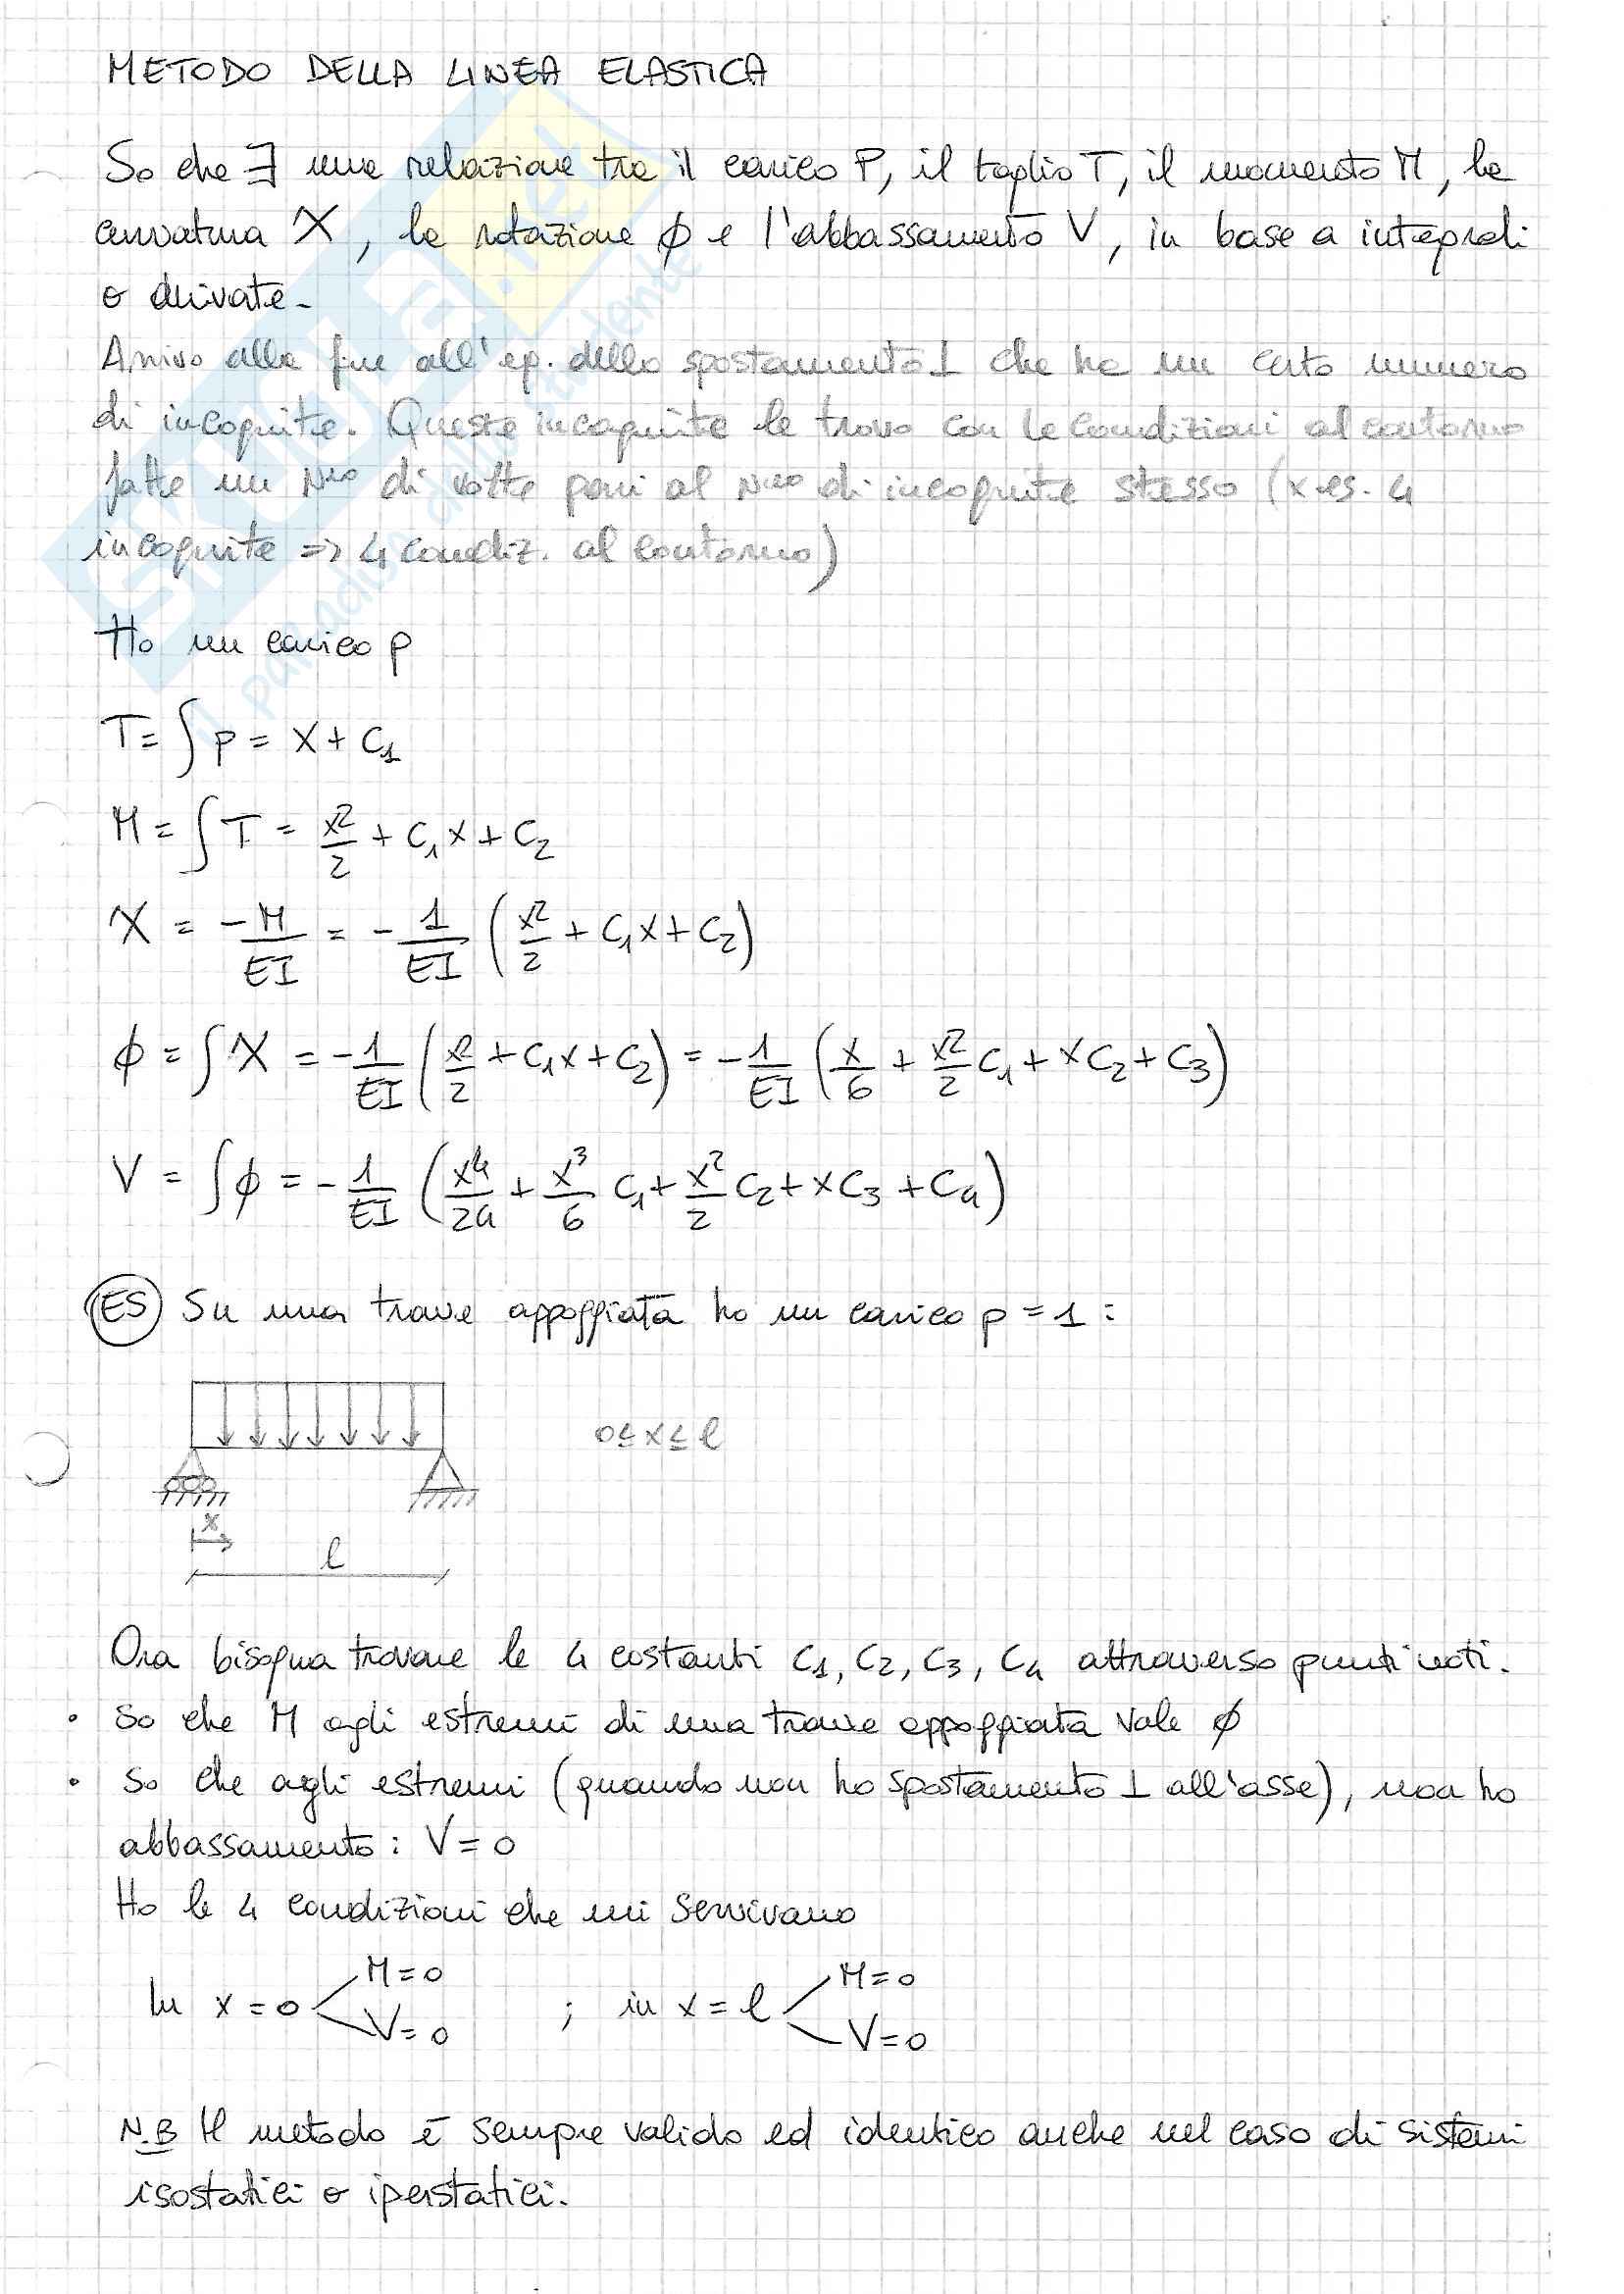 METODO DELLA LINEA ELASTICA
So che ∃ una relazione tra il carico P, il taglio T, il momento M, la
curvatura X, la rotazione ϕ e l'abbassamento V, in base a integrali
o derivate.
Arrivo alla fine all'eq. dello spostamento ⊥ che ha un certo numero
di incognite. Queste incognite le trovo con le condizioni al contorno
fatte un Nro di volte pari al Nro di incognite stesso (x es. 4
incognite => 4 condiz. al contorno)
Ho un carico p
T = ∫ p = x + C1
M = ∫ T = x²/2 + C1x + C2
X = -M/EI = - 1/EI (x²/2 + C1x + C2)
ϕ = ∫ X = - 1/EI (x²/2 + C1x + C2) = - 1/EI (x/6 + x²/2 C1 + xC2 + C3)
V = ∫ ϕ = - 1/EI (x⁴/24 + x³/6 C1 + x²/2 C2 + xC3 + C4)
ES Su una trave appoggiata ho un carico p = 1 :
0 ≤ x ≤ l
x
l
Ora bisogna trovare le 4 costanti C1, C2, C3, C4 attraverso punti noti.
• So che M agli estremi di una trave appoggiata vale ϕ
• So che agli estremi (quando non ho spostamento ⊥ all'asse), non ho
abbassamento : V = 0
Ho le 4 condizioni che mi servivano
In x = 0 < M = 0 V = 0 ; in x = l < M = 0 V = 0
N.B Il metodo è sempre valido ed identico anche nel caso di sistemi
isostatici o iperstatici.